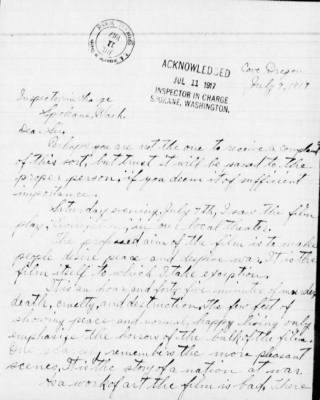 ACKNOWLEDGED
JUL 11 1917
INSPECTOR IN CHARGE
SPOKANE, WASHINGTON.
Cove, Oregon
July 9, 1917
Inspector in Charge
Spokane, Wash.
Dear Sir,
Perhaps you are not the one to receive a complaint
of this sort, but trust it will be sent to the
proper person, if you deem it of sufficient
importance.
Saturday evening, July 7th, I saw the film
play, Civilization, in our local theater.
The professed aim of the film is to make
people desire peace and despise war. It is the
film itself to which I take exception.
It is an hour and forty five minutes of murder,
death, cruelty, and destruction. The few feet of
showing peace and normal, happy living only
emphasize the horror of the bulk of the film.
One remembers the more pleasant
scenes. It is the story of a nation at war.
As a work of art the film is bad. There